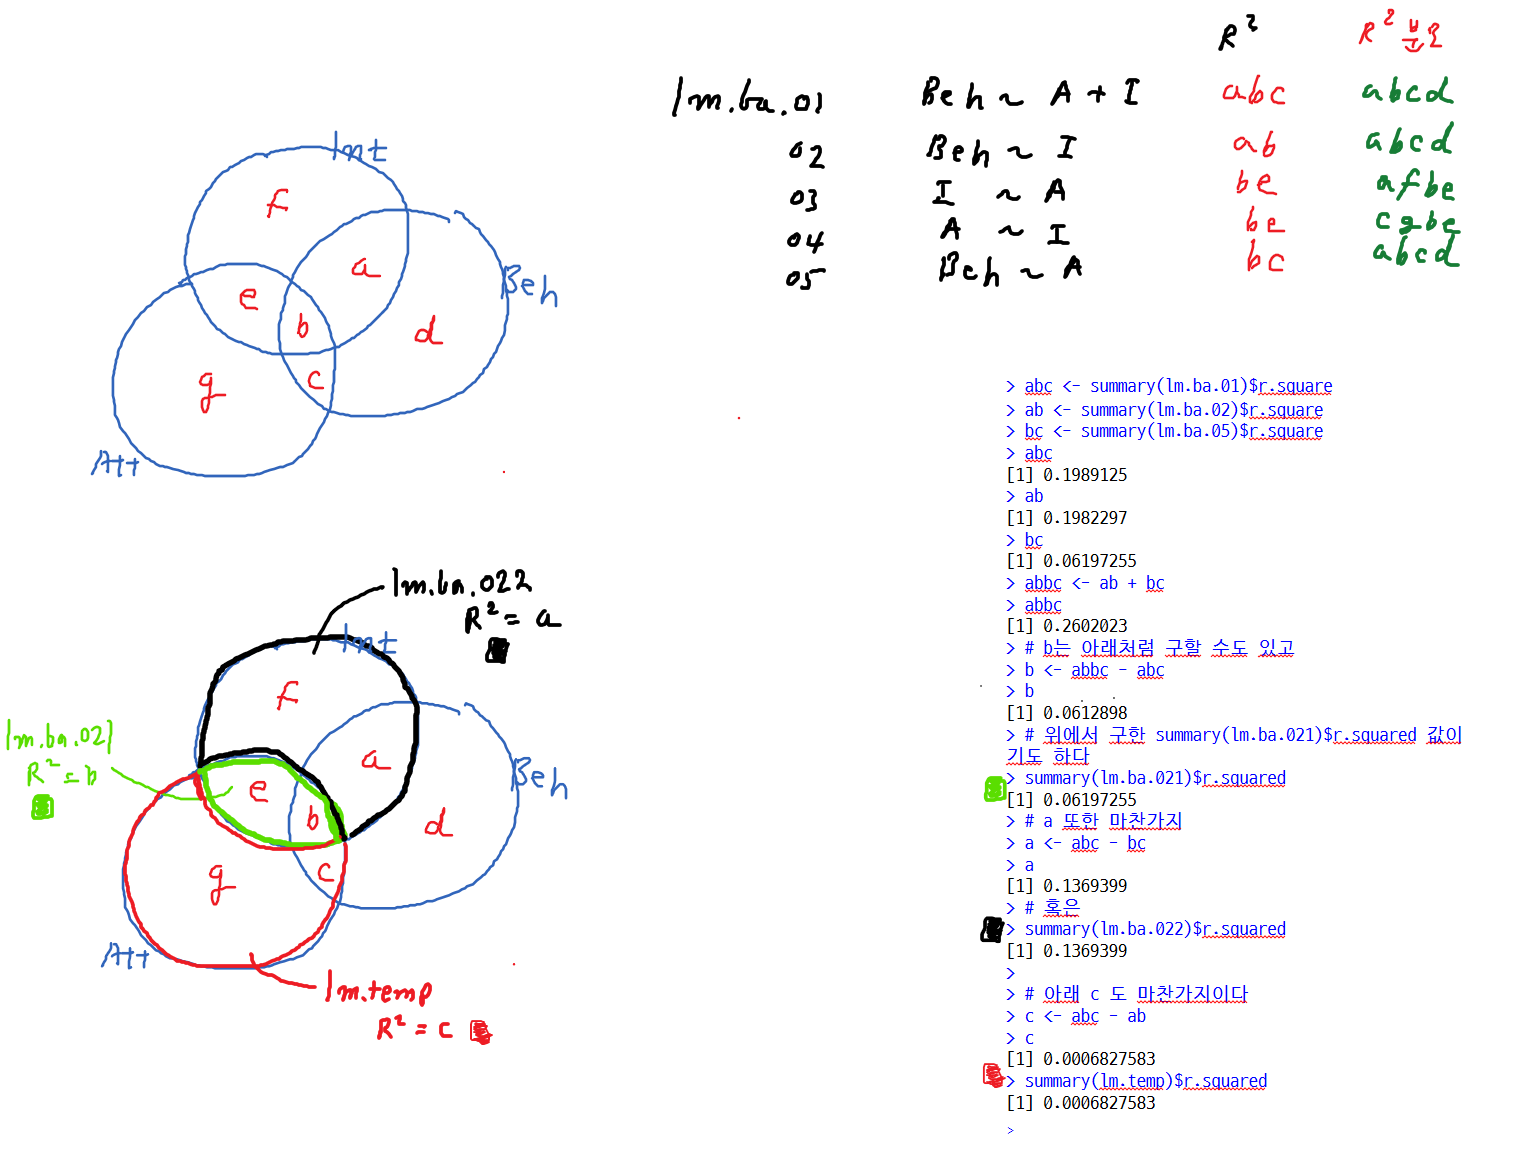 R² R² 분모
lm.ba.01 Beh ~ A + I abc abcd
02 Beh ~ I ab abcd
03 I ~ A be afbe
04 A ~ I be cgbe
05 Beh ~ A bc abcd
Int
f
a
Beh
e
b
d
c
g
Att
> abc <- summary(lm.ba.01)$r.square
> ab <- summary(lm.ba.02)$r.square
> bc <- summary(lm.ba.05)$r.square
> abc
[1] 0.1989125
> ab
[1] 0.1982297
> bc
[1] 0.06197255
> abbc <- ab + bc
> abbc
[1] 0.2602023
> # b는 아래처럼 구할 수도 있고
> b <- abbc - abc
> b
[1] 0.0612898
> # 위에서 구한 summary(lm.ba.021)$r.squared 값이
기도 하다
> summary(lm.ba.021)$r.squared
[1] 0.06197255
> # a 또한 마찬가지
> a <- abc - bc
> a
[1] 0.1369399
> # 혹은
> summary(lm.ba.022)$r.squared
[1] 0.1369399
>
> # 아래 c 도 마찬가지이다
> c <- abc - ab
> c
[1] 0.0006827583
> summary(lm.temp)$r.squared
[1] 0.0006827583
>
lm.ba.022
R² = a
Int
f
lm.ba.021
R² = b
a
Beh
e
b
d
c
g
Att
lm.temp
R² = c